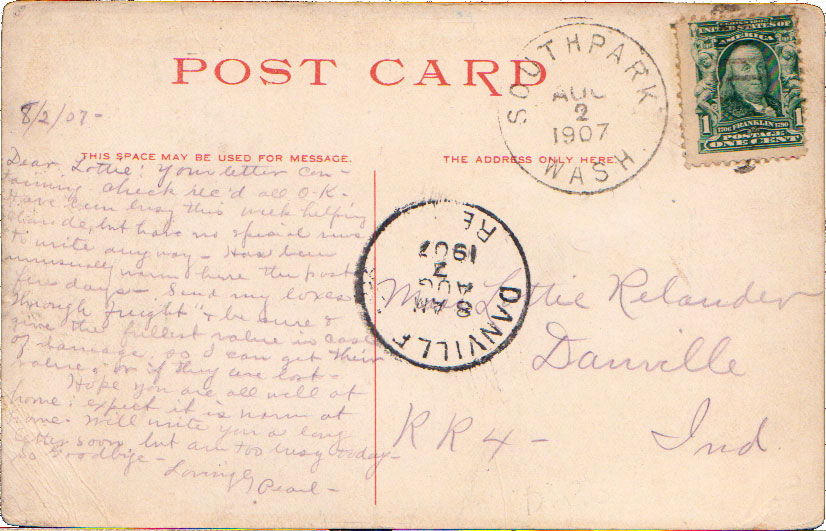 POST CARD
SOUTHPARK
AUG
2
1907
WASH.
UNITED STATES OF
AMERICA
1706 FRANKLIN 1790
1 POSTAGE 1
ONE CENT
8/2/07-
THIS SPACE MAY BE USED FOR MESSAGE.
THE ADDRESS ONLY HERE
Dear Lottie: Your letter con-
taining check rec'd all O-K-
Have been busy this week helping
but have no special news
to write anyway - Has been
unusually warm here the past
few days - Send my boxes
through freight & be sure &
give the fullest value in case
of damage, so I can get their
value, or if they are lost -
Hope you are all well at
home: expect it is warm at
home. Will write you a long
letter soon, but am too busy today-
So Goodbye -
Lovingly
Pearl -
DANVILLE
8 AM
AUG
7
1907
RE
Lottie Relander
Danville
RR4- Ind.